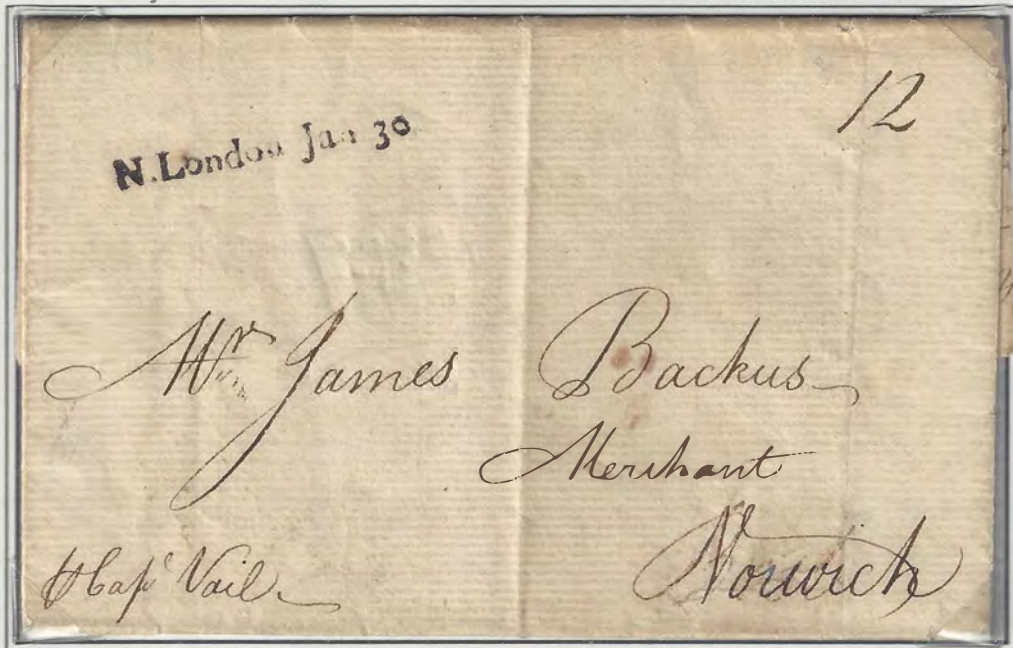 N. London Jan 30
12
Mr James Backus
Merchant
Norwich
⅌ Capt Vail